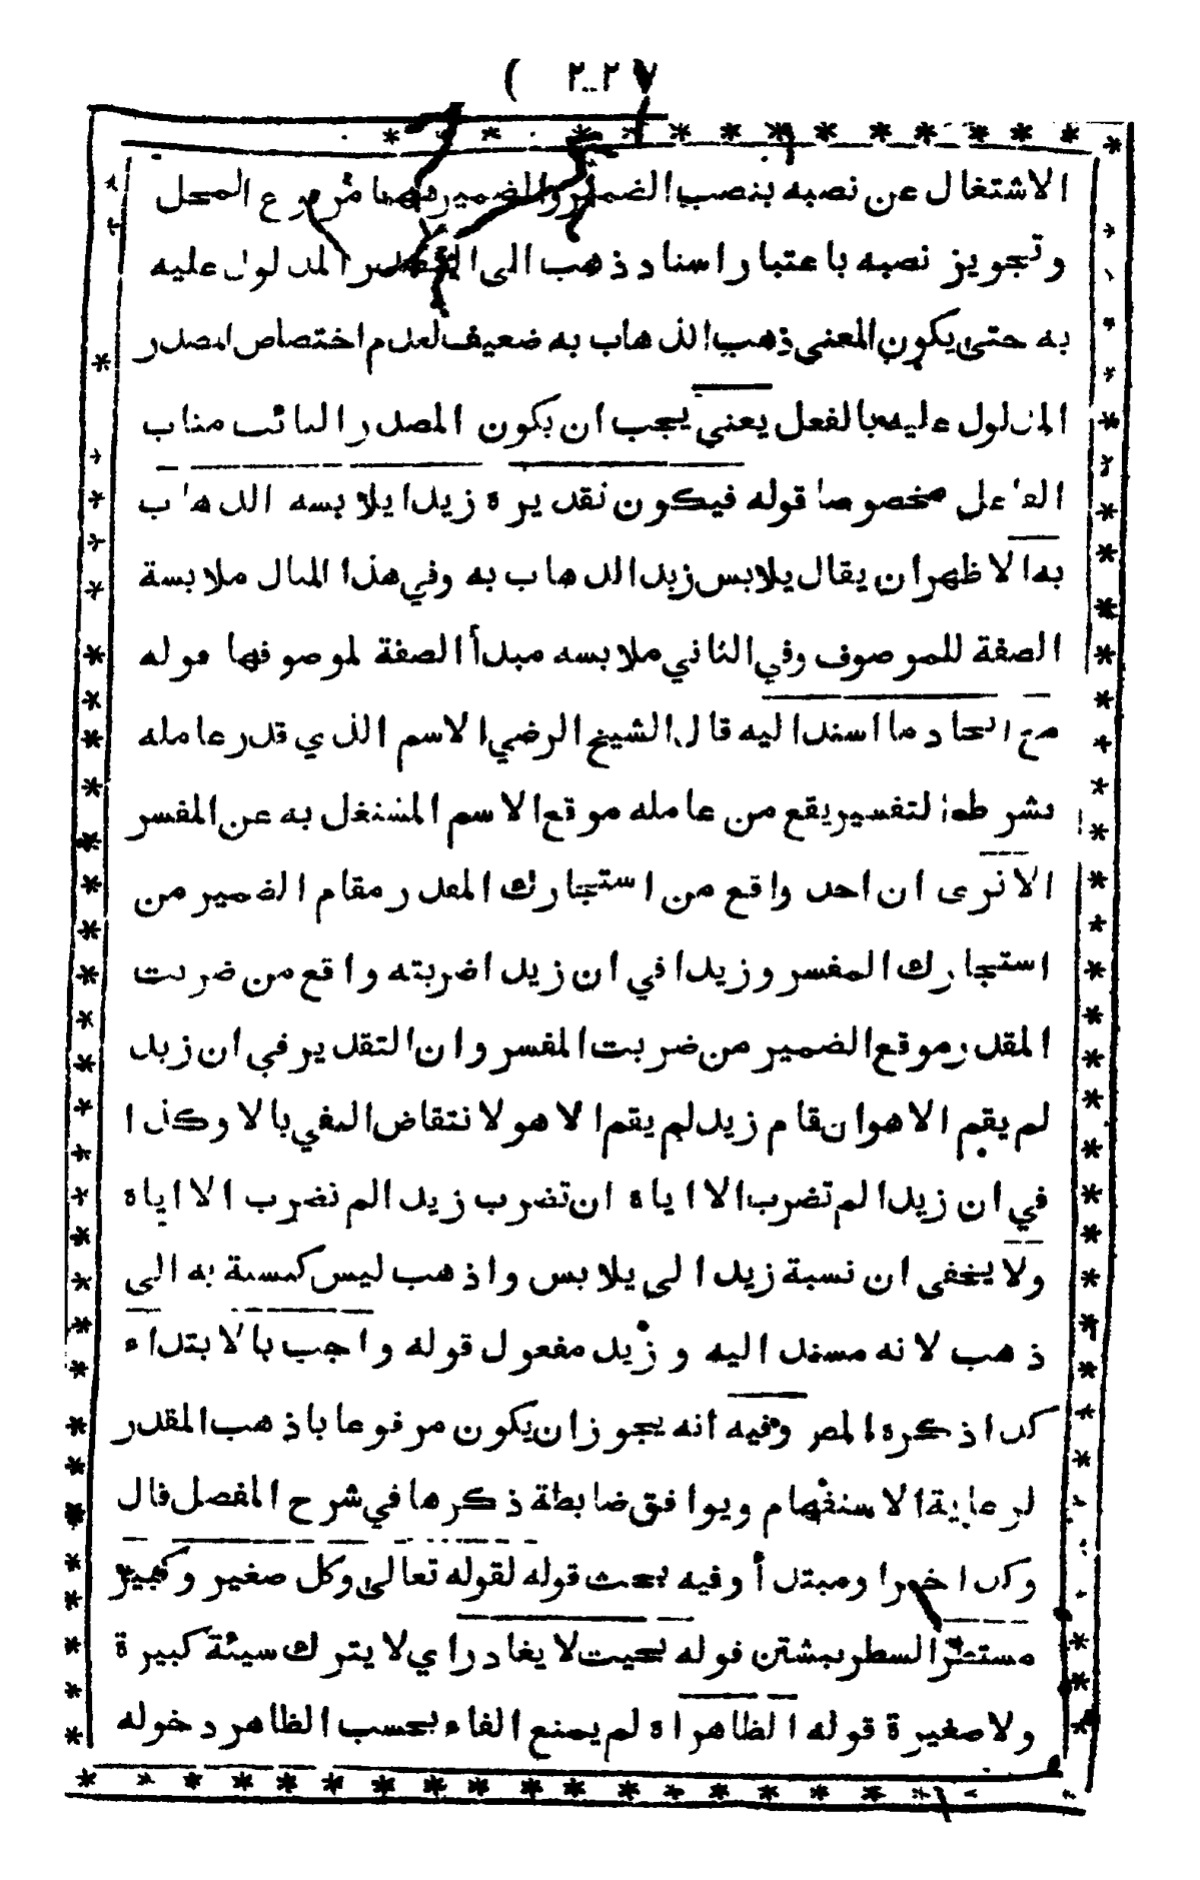 ( ٢٢٧
الاشتغال عن نصبه بنصب الضمير والضمير فهما مرفوع المحل
وتجويز نصبه باعتبار اسناد ذهب الى المصدر المدلول عليه
به حتى يكون المعنى ذهب الذهاب به ضعيف لعدم اختصاص المصدر
المدلول عليه بالفعل يعني يجب ان يكون المصدر النائب مناب
الفاعل مخصوصا قوله فيكون تقديره زيدا يلابسه الذهاب
به الاظهر ان يقال يلابس زيدا الذهاب به وفي هذا المثال ملابسة
الصفة للموصوف وفي الثاني ملابسه مبدأ الصفة لموصوفها قوله
مع اتحاد ما اسند اليه قال الشيخ الرضي الاسم الذي قدر عامله
بشرطة التفسير يقع من عامله موقع الاسم المشتغل به عن المفسر
الا ترى ان احد واقع من استجارك المقدر مقام الضمير من
استجارك المفسر وزيدا في ان زيدا ضربته واقع من ضربت
المقدر موقع الضمير من ضربت المفسر وان التقدير في ان زيد
لم يقم الا هو ان قام زيد لم يقم الا هو لانتقاض النفي بالا وكذا
في ان زيدا لم تضرب الا اياه ان تضرب زيدا لم تضرب الا اياه
ولا يخفى ان نسبة زيد الى يلابس واذهب ليس كنسبة به الى
ذهب لانه مسند اليه وزيد مفعول قوله واجب بالابتداء
كذا ذكره المص وفيه انه يجوز ان يكون مرفوعا باذهب المقدر
لرعاية الاستفهام ويوافق ضابطة ذكرها في شرح المفصل قال
وكذا خبرا ومبتدأ وفيه بحث قوله لقوله تعالى وكل صغير وكبير
مستطر السطر ببشتن قوله بحيث لا يغادر اي لا يترك سيئة كبيرة
ولا صغيرة قوله الظاهر اه لم يمنع الفاء بحسب الظاهر دخوله